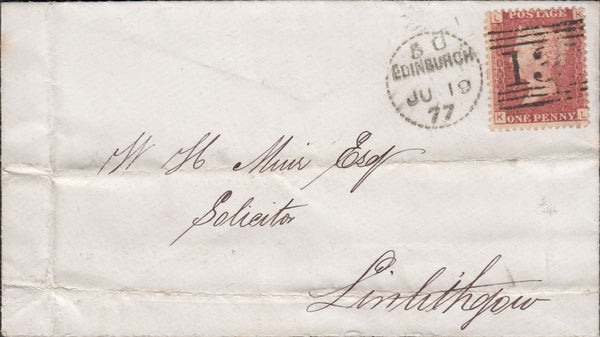 L K
POSTAGE
13
K L
ONE PENNY
EDINBURGH
JU 19
77
W H Muir Esq
Solicitor
Linlithgow